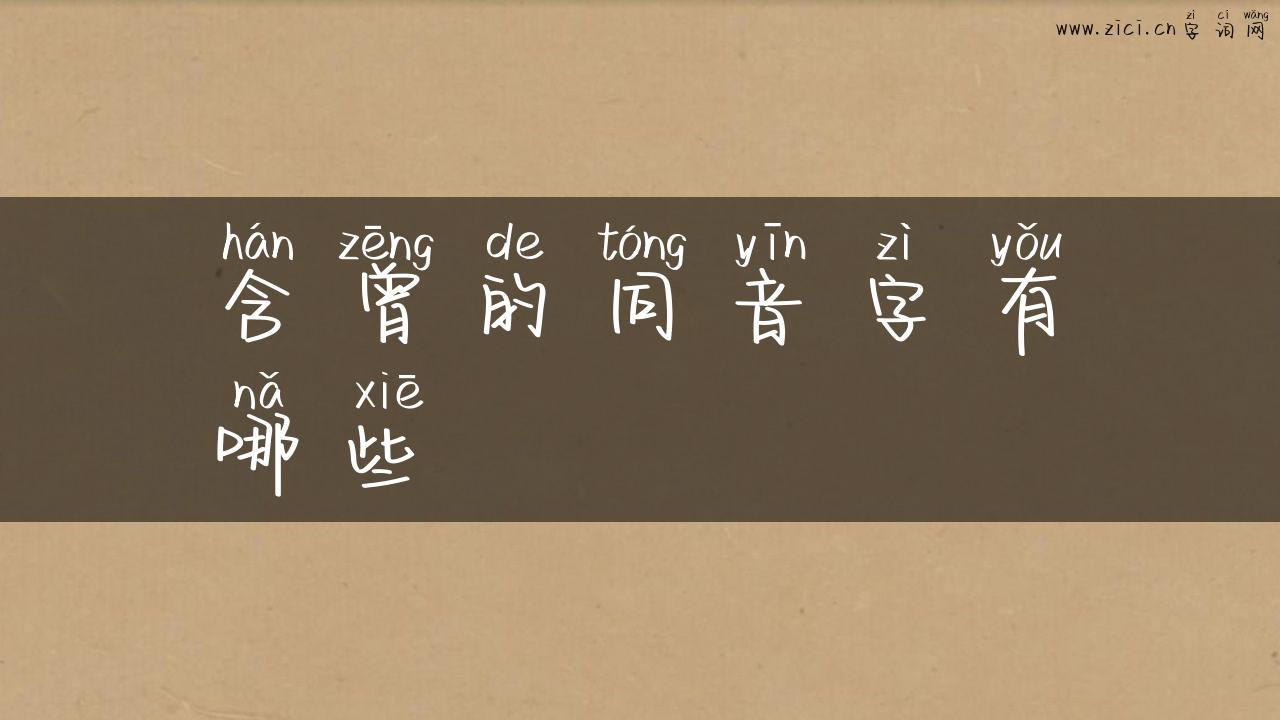 www.zici.cn 字词网
zì cí wǎng
hán zēng de tóng yīn zì yǒu
含曾的同音字有
nǎ xiē
哪些